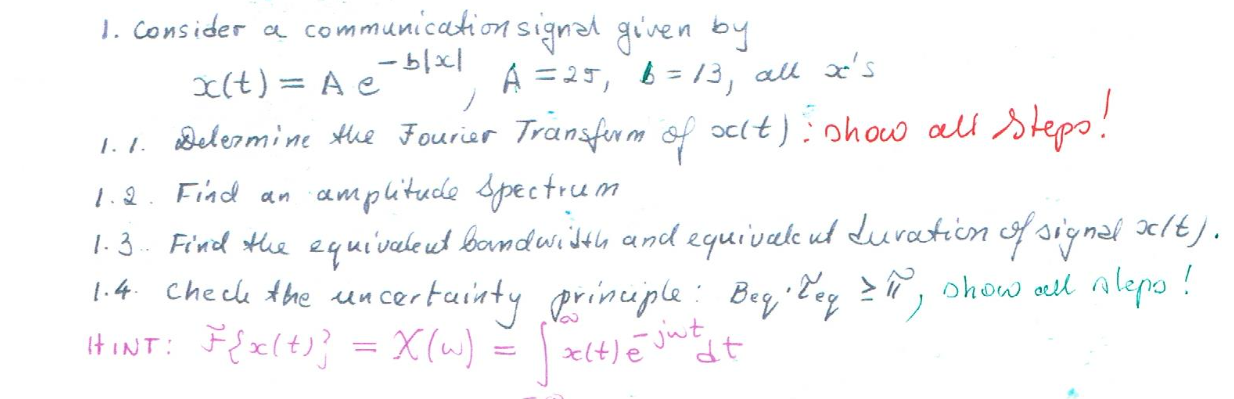 1. Consider a communication signal given by
x(t) = A e^{-b|x|}, A = 25, b = 13, all x's
1.1. Determine the Fourier Transform of x(t) : show all steps!
1.2. Find an amplitude spectrum
1.3. Find the equivalent bandwidth and equivalent duration of signal x(t).
1.4. Check the uncertainty principle: Beq · τeq ≥ π, show all steps!
HINT: F{x(t)} = X(ω) = ∫^{∞} x(t) e^{-jωt} dt